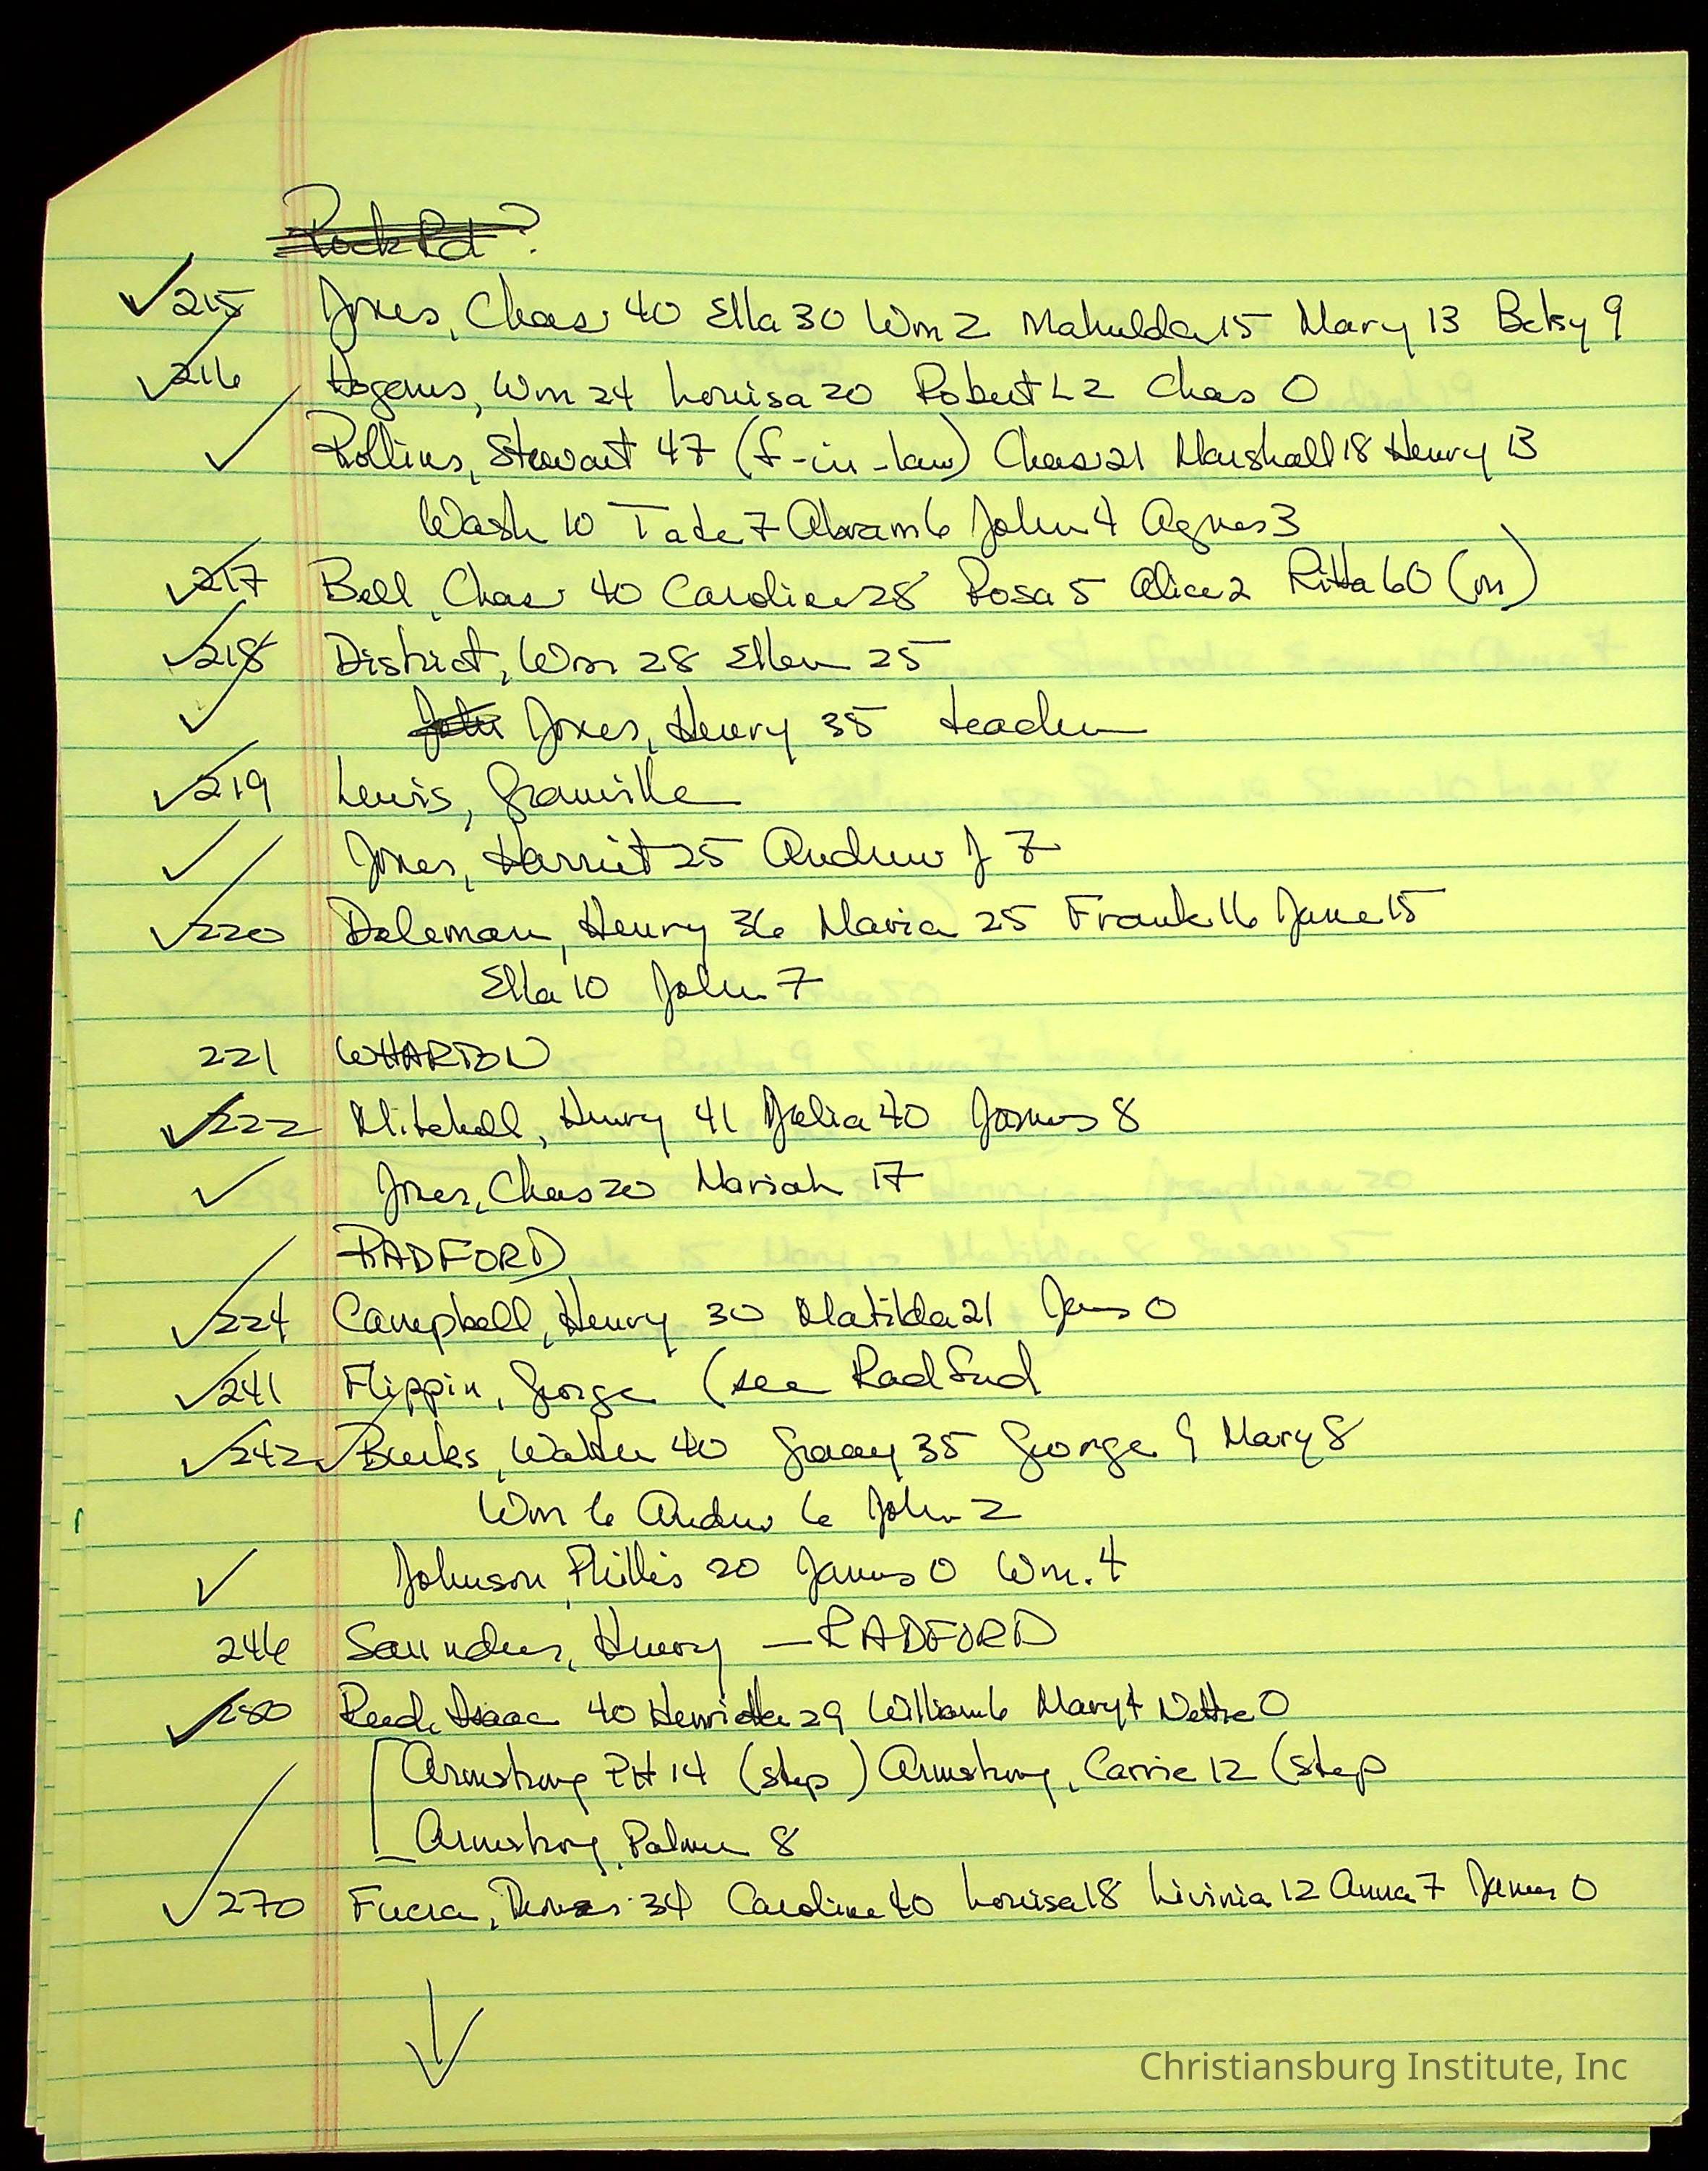 Rock Rd?
✓215 Jones, Chas 40 Ella 30 Wm 2 Mahulda 15 Mary 13 Betsy 9
✓216 Rogers, Wm 24 Louisa 20 Robert L 2 Chas 0
✓ Rollins, Stewart 47 (f-in-law) Chas 21 Marshall 18 Henry 13
Wash 10 Tate 7 Abram 6 John 4 Agnes 3
✓217 Bell, Chas 40 Caroline 28 Rosa 5 Alice 2 Ritta 60 (m)
✓218 District, Wm 28 Ellen 25
✓ John Jones, Henry 35 teacher
✓219 Lewis, Granville
✓ Jones, Harriet 25 Andrew J 7
✓220 Doleman, Henry 36 Maria 25 Frank 16 Jane 15
Ella 10 John 7
221 WHARTON
✓222 Mitchell, Henry 41 Julia 40 James 8
✓ Jones, Chas 20 Mariah 17
RADFORD
✓224 Campbell, Henry 30 Matilda 21 Jas 0
✓241 Flippin, George (see Radford
✓242 ✓Burks, Walter 40 35 George 9 Mary 8
Wm 6 Andrew 6 John 2
✓ Johnson, Phillis 20 James 0 Wm. 4
246 Saunders, Henry — RADFORD
✓280 Reed, Isaac 40 Henrietta 29 William 6 Mary 4 Nettie 0
[Armstrong PH 14 (step) Armstrong, Carrie 12 (step
Armstrong, Palmer 8
✓270 34 Caroline 40 Louisa 18 Livinia 12 Anna 7 James 0
↓
Christiansburg Institute, Inc